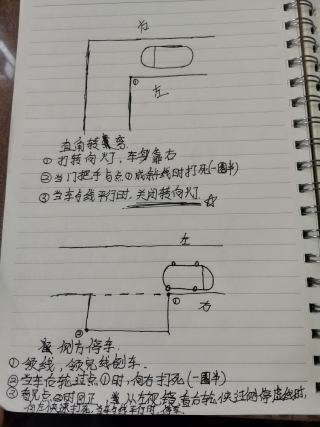 右
①
左
直角转弯
①打转向灯，车身靠右
②当门把手与点①成斜线时打死(一圈半)
③当车与线平行时，关闭转向灯
左
①
右
②
侧方停车
②当车右轮过点①时，向右打死(一圈半)
③看见点②时回正，从左视镜看右轮快
向左快速打死，当车与线平行时，停车.